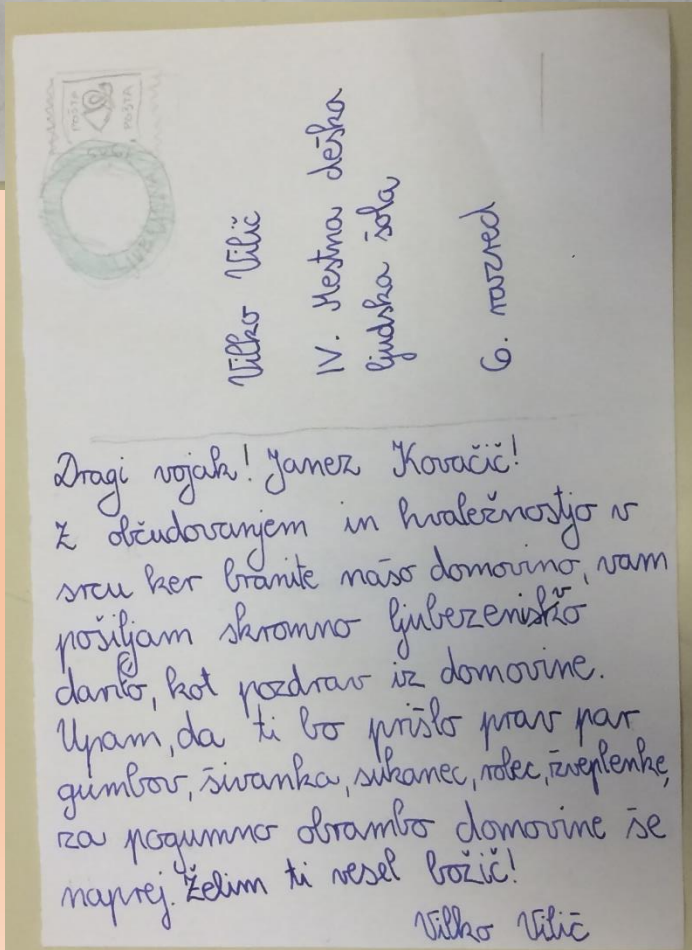 POŠTA
POŠTA
Vilko Vilič
IV. Mestna deška
ljudska šola
6. razred
Dragi vojak! Janez Kovačič!
Z občudovanjem in hvaležnostjo v
srcu ker branite našo domovino, vam
pošiljam skromno ljubezensko
darilo, kot pozdrav iz domovine.
Upam, da ti bo prišlo prav par
gumbov, šivanka, sukanec, robec, žveplenke,
za pogumno obrambo domovine še
naprej. Želim ti vesel božič!
Vilko Vilič